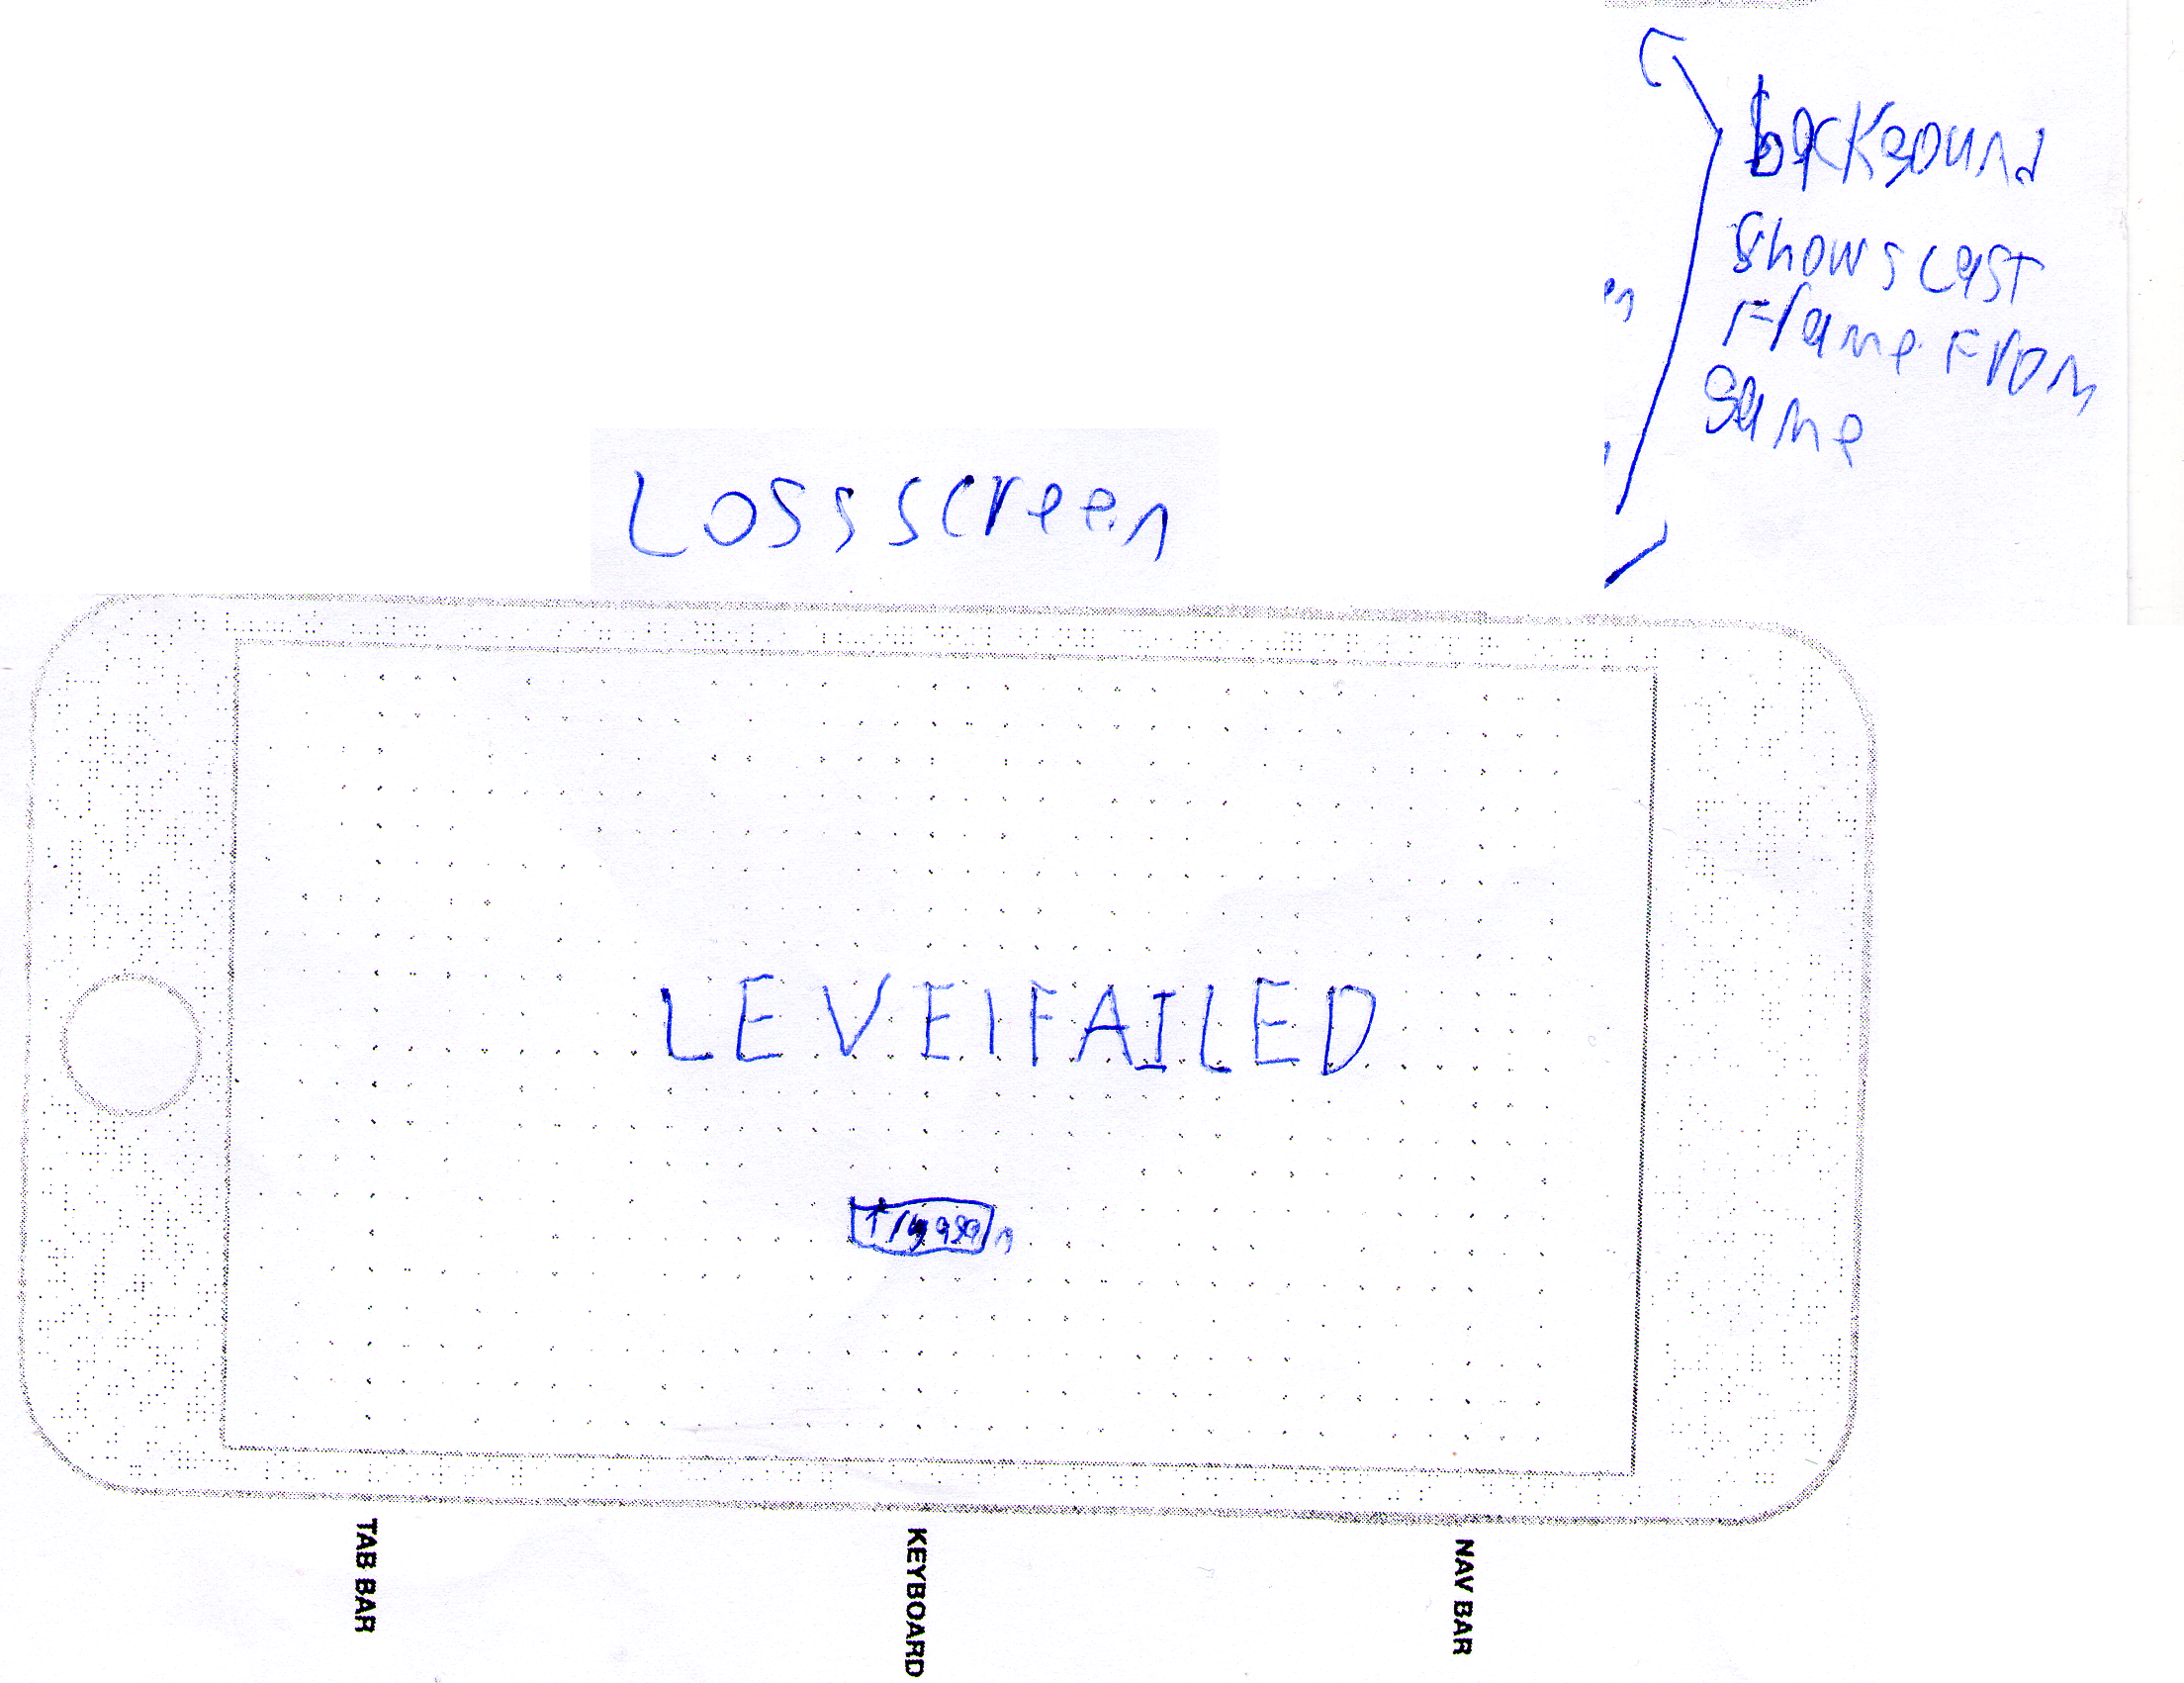 backgound
shows last
Frame From
game
Loss screen
LEVEl FAILED
Try again
TAB BAR
KEYBOARD
NAV BAR